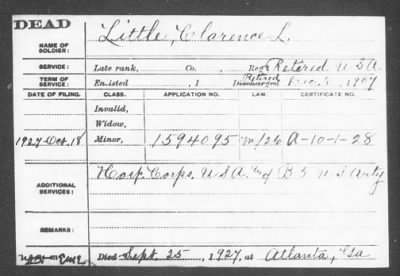 DEAD
NAME OF SOLDIER: Little, Clarence L.
SERVICE: Late rank, Co. Reg't Retired U S A
TERM OF SERVICE: Enlisted , 1 Retired Discharged , 1907
DATE OF FILING. CLASS. APPLICATION NO. LAW. CERTIFICATE NO.
Invalid,
Widow,
1927 Oct. 18 Minor, 1594095 m/26 A-10-1-28
ADDITIONAL SERVICES: Hosp. Corps. U S A. B 5 U S Arty
REMARKS:
Died Sept. 25, 1927, at Atlanta, Ga